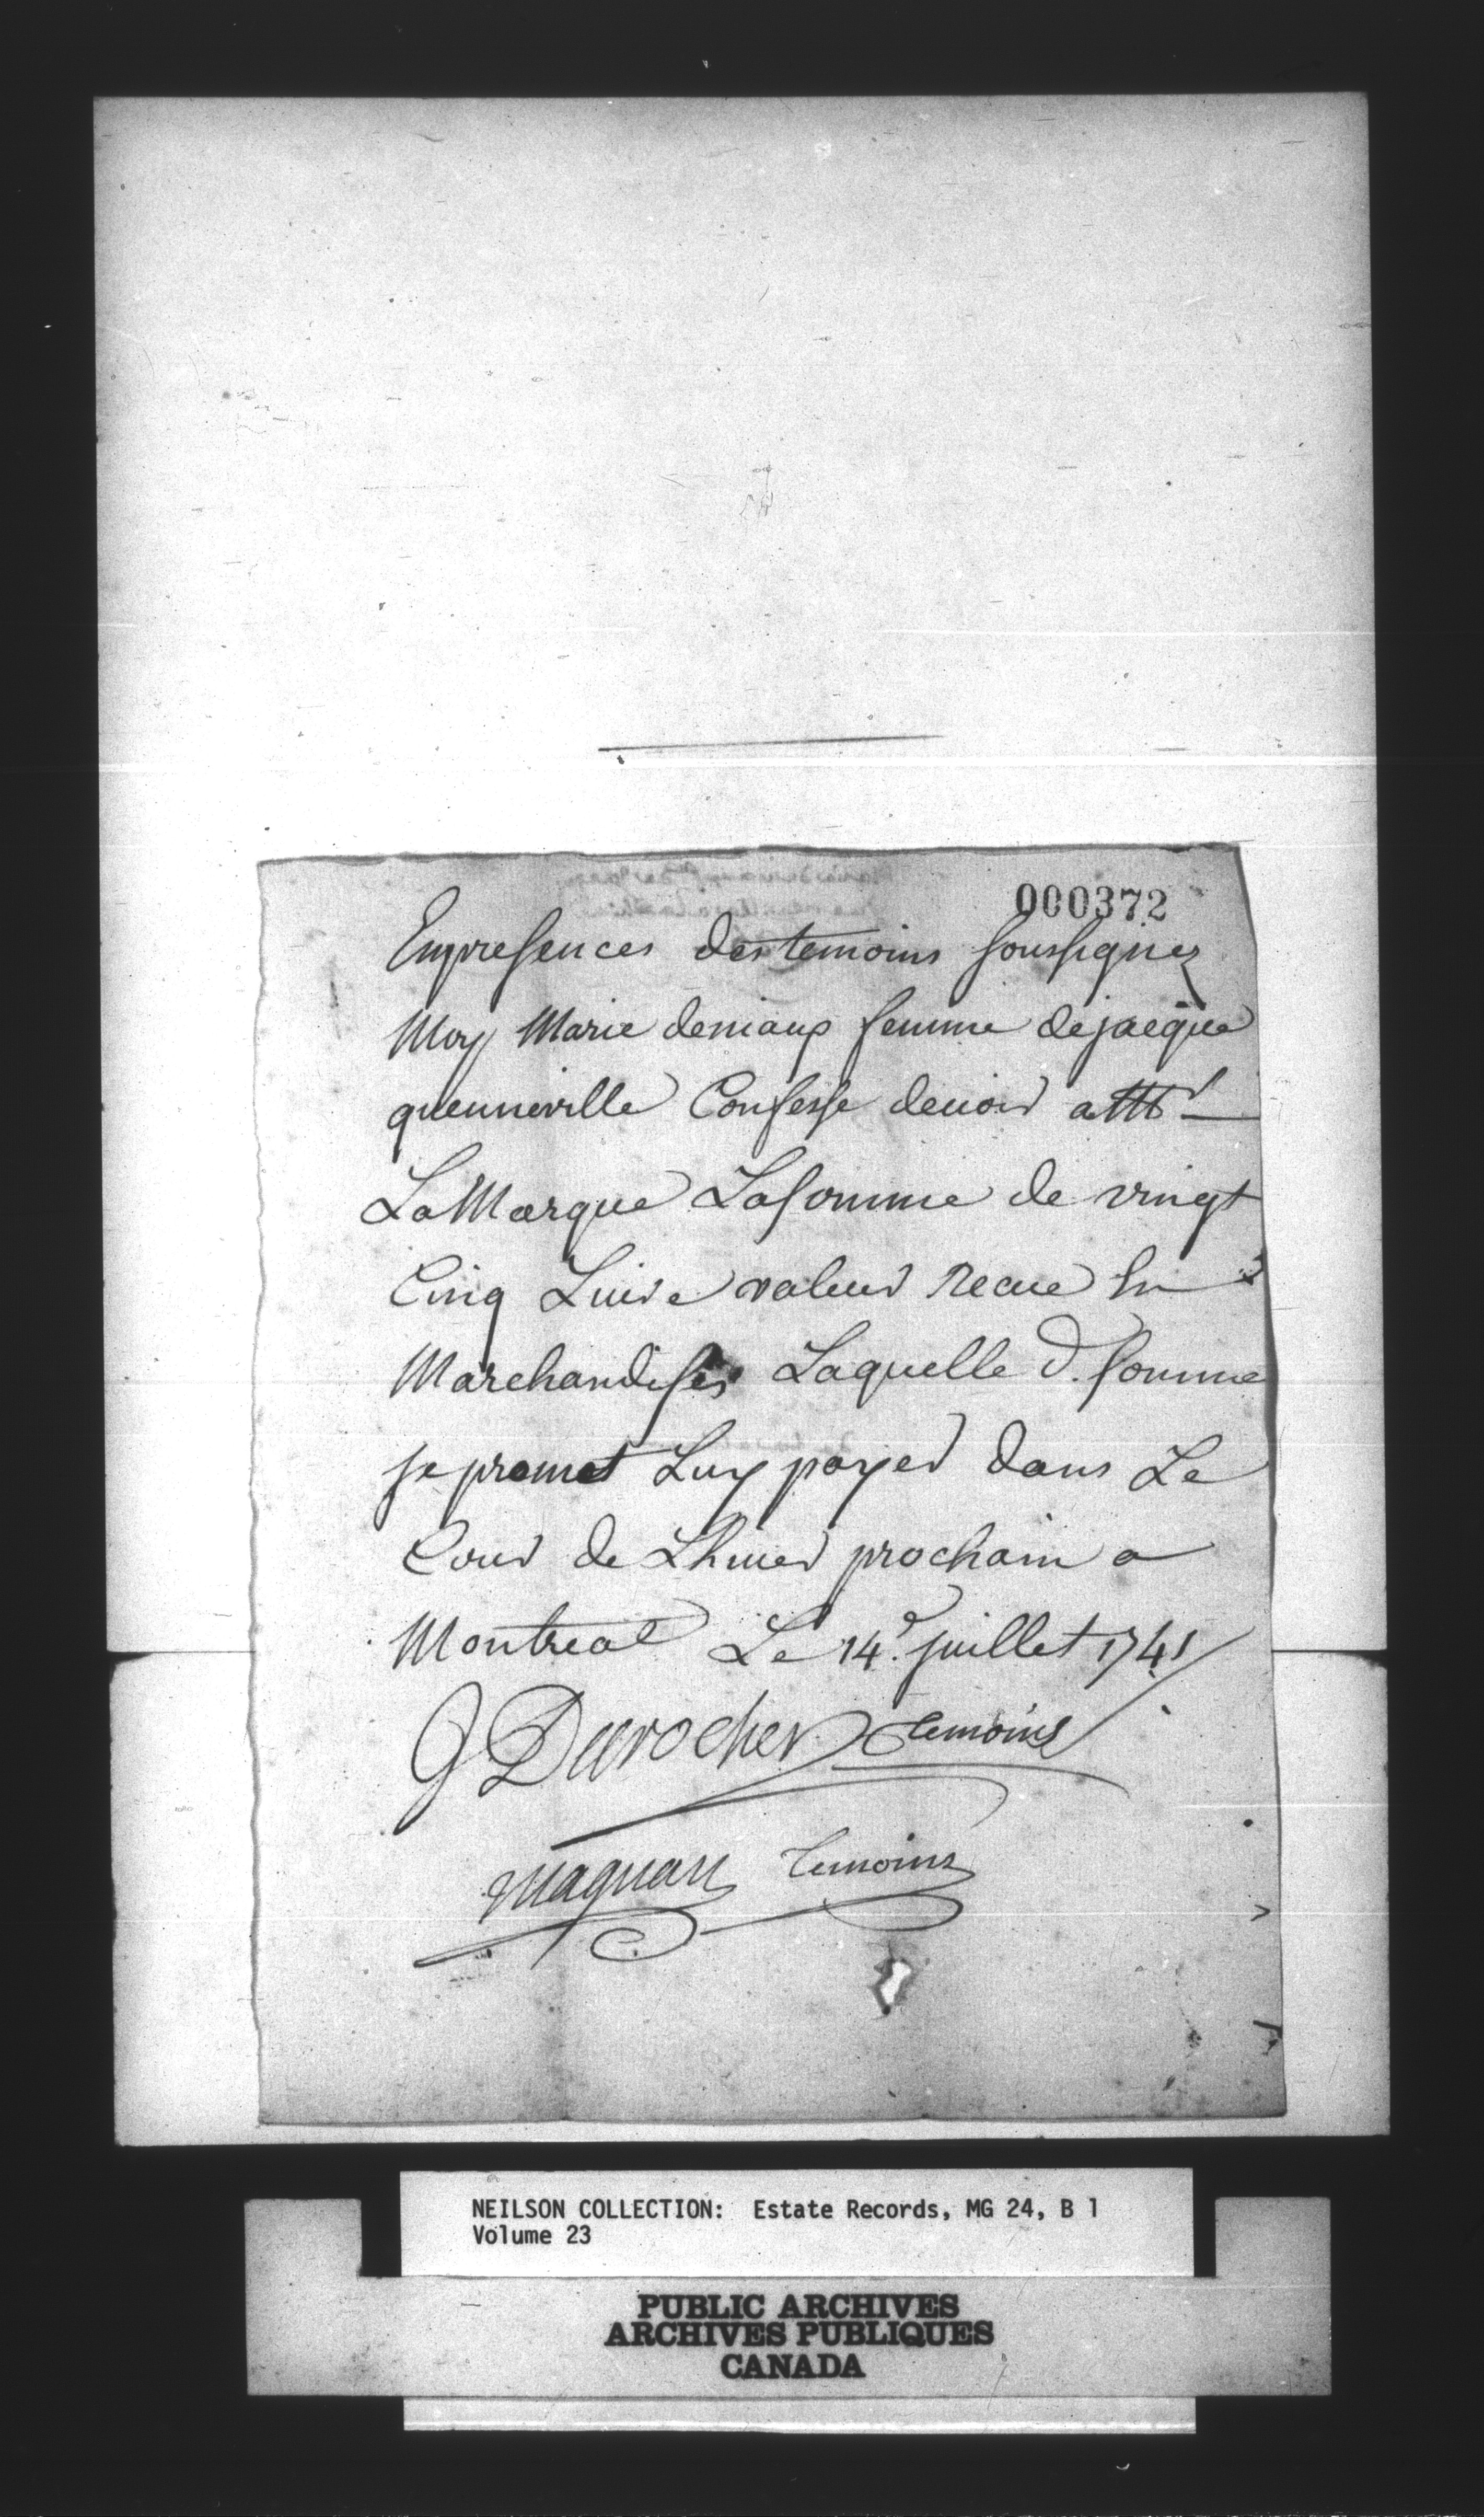 000372
Enpresences des temoins soussignez
Moy Marie deniaup femme de jacque
quenneville Confesse devoir a Mr
La Marque La somme de vingt
Cinq Livre valeur Recue En
Marchandises Laquelle d. somme
je promet Luy payer dans Le
Cour de Lhiver prochain a
Montreal Le 14e. juillet 1741
G Durocher temoins
Magnan temoins
NEILSON COLLECTION: Estate Records, MG 24, B 1
Volume 23
PUBLIC ARCHIVES
ARCHIVES PUBLIQUES
CANADA